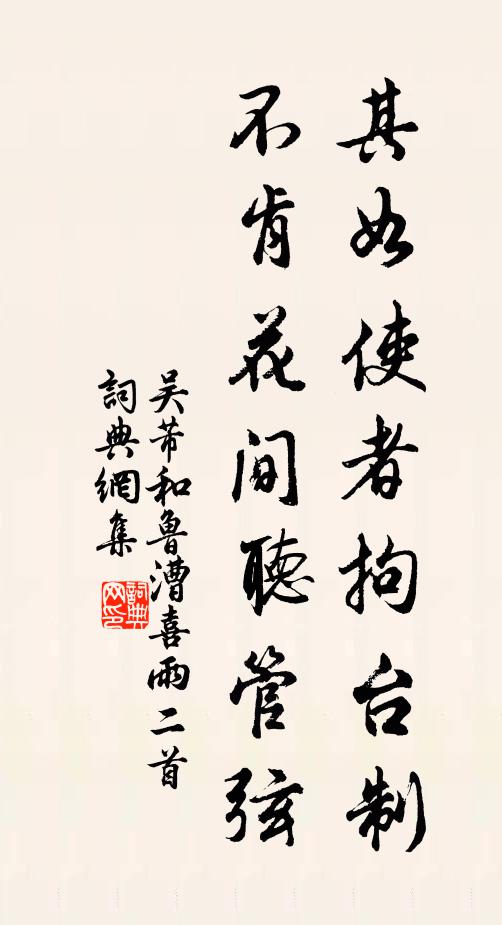 其如使者拘台制
不肯花间聽管弦
吴芾和魯漕喜雨二首
詞典網集
詞典网印